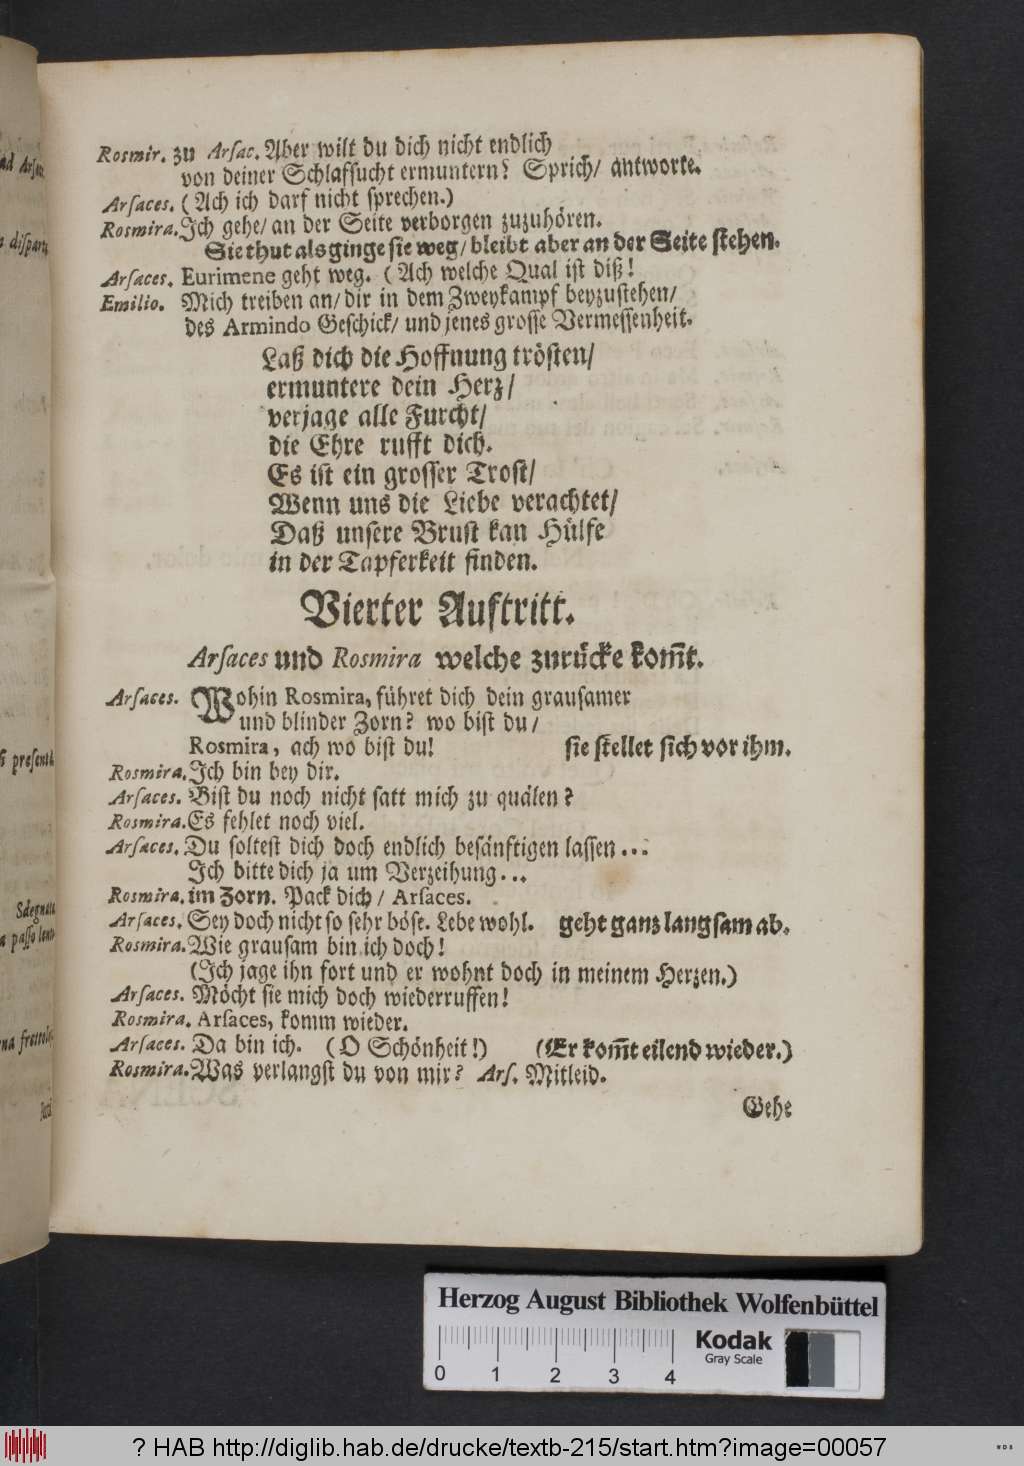 Rosmir. zu Arsac. Aber wilt du dich nicht endlich
von deiner Schlafsucht ermuntern? Sprich/ antworte.
Arsaces. (Ach ich darf nicht sprechen.)
Rosmira. Ich gehe/ an der Seite verborgen zuzuhören.
Sie thut als ginge sie weg/ bleibt aber an der Seite stehen.
Arsaces. Eurimene geht weg. (Ach welche Qual ist diß!
Emilio. Mich treiben an/ dir in dem Zweykampf beyzustehen/
des Armindo Geschick/ und jenes grosse Vermessenheit.
Laß dich die Hoffnung trösten/
ermuntere dein Herz/
verjage alle Furcht/
die Ehre rufft dich.
Es ist ein grosser Trost/
Wenn uns die Liebe verachtet/
Daß unsere Brust kan Hülfe
in der Tapferkeit finden.
Vierter Auftritt.
Arsaces und Rosmira welche zurücke kom̃t.
Arsaces. Wohin Rosmira, führet dich dein grausamer
und blinder Zorn? wo bist du/
Rosmira, ach wo bist du! sie stellet sich vor ihm.
Rosmira. Ich bin bey dir.
Arsaces. Bist du noch nicht satt mich zu quälen?
Rosmira. Es fehlet noch viel.
Arsaces. Du soltest dich doch endlich besänftigen lassen...
Ich bitte dich ja um Verzeihung...
Rosmira. im Zorn. Pack dich/ Arsaces.
Arsaces. Sey doch nicht so sehr böse. Lebe wohl. geht ganz langsam ab.
Rosmira. Wie grausam bin ich doch!
(Ich jage ihn fort und er wohnt doch in meinem Herzen.)
Arsaces. Möcht sie mich doch wiederruffen!
Rosmira. Arsaces, komm wieder.
Arsaces. Da bin ich. (O Schönheit!) (Er kom̃t eilend wieder.)
Rosmira. Was verlangst du von mir? Ars. Mitleid.
Gehe
Herzog August Bibliothek Wolfenbüttel
Kodak
Gray Scale
0 1 2 3 4
? HAB http://diglib.hab.de/drucke/textb-215/start.htm?image=00057